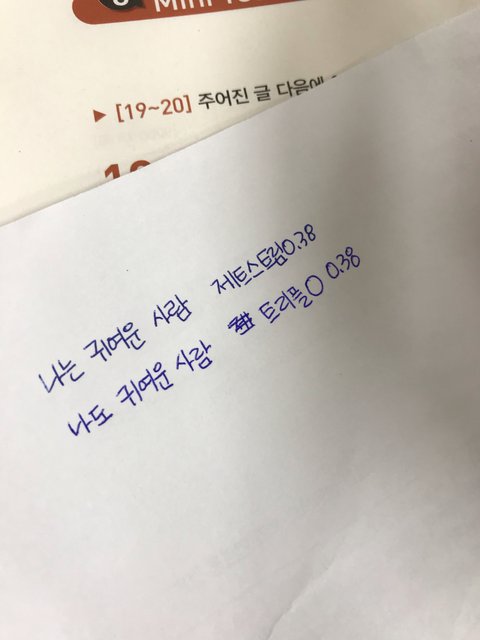 Mini
▶ [19~20] 주어진 글 다음에
나는 귀여운 사람 제트스트림0.38
나도 귀여운 사람 트리플O 0.38